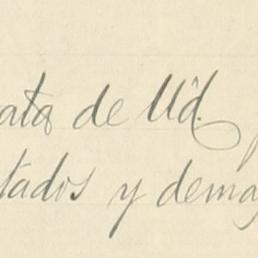 ata de Ud.
tados y demás